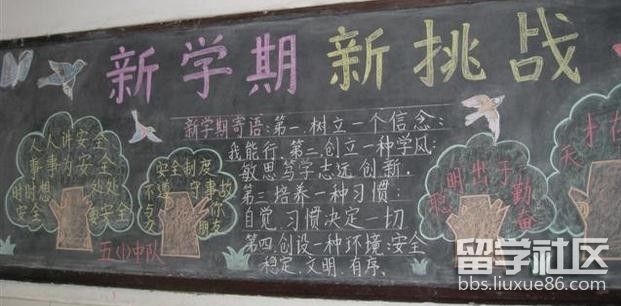 新学期 新挑战
人人讲安全
事事为安全
时时想安全
处处要安全
安全制度
不遵守
事故
朋友
五(1)中队
新学期寄语:第一.树立一个信念:
我能行.第二创立一种学风:
敏思笃学志远.创新.
第三.培养一种习惯:
自觉.习惯决定一切
第四.创设一种环境:安全
稳定.文明.有序.
聪明出于勤奋
天才在
留学社区
bbs.liuxue86.com